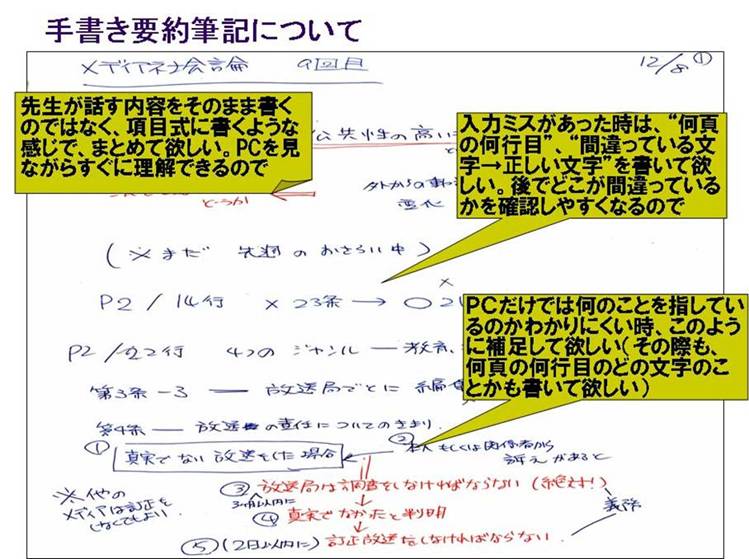 手書き要約筆記について
メディアと社会論 9回目
12/8 ①
先生が話す内容をそのまま書く
のではなく、項目式に書くような
感じで、まとめて欲しい。PCを見
ながらすぐに理解できるので
公共性の高い
入力ミスがあった時は、“何頁
の何行目”、“間違っている文
字→正しい文字”を書いて欲
しい。後でどこが間違っている
かを確認しやすくなるので
外からの
(※まだ 先週のおさらい中)
P2/14行 × 23条→○2
PCだけでは何のことを指してい
るのかわかりにくい時、このよう
に補足して欲しい(その際も、
何頁の何行目のどの文字のこ
とかも書いて欲しい)
P2/22行 4つのジャンル―教育、
第3条-3 ― 放送局ごとに 編
第4条― 放送の責任についてのきまり。
① 真実でない放送をした場合
② 本人もしくは関係者から
訴えがあると
③ 放送局は調査をしなければならない(絶対!)
3ヶ月以内に
※他の
メディアは訂正を
しなくてもよい。
④ 真実でなかったと判明
義務
⑤ (2日以内に) 訂正放送をしなければならない